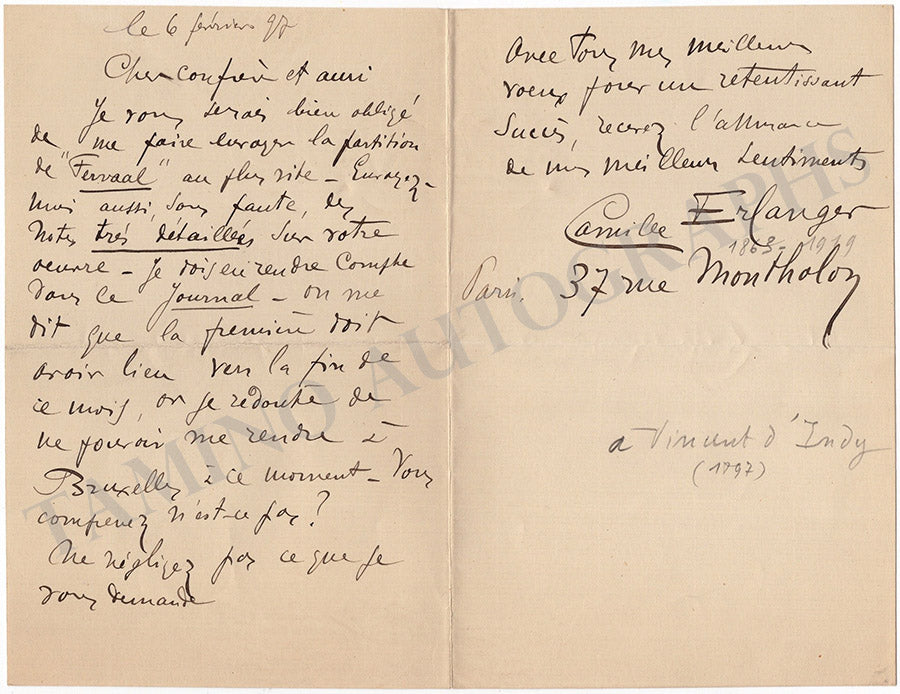 le 6 février 97
Cher confrère et ami
Je vous serais bien obligé
de me faire envoyer la partition
de "Fervaal" au plus vite - Envoyez-
moi aussi, sans faute, des
Notes très détaillées sur votre
oeuvre - Je dois en rendre compte
dans le Journal - on me
dit que la première doit
avoir lieu vers la fin de
ce mois, or je redoute de
ne pouvoir me rendre à
Bruxelles à ce moment - Vous
comprenez n'est-ce pas?
Ne négligez pas ce que je
vous demande
Avec tous mes meilleurs
voeux pour un retentissant
succès, recevez l'assurance
de mes meilleurs sentiments
Camille Erlanger
1863-1919
Paris. 37 rue Montholon
à Vincent d'Indy
(1897)
TAMINO AUTOGRAPHS